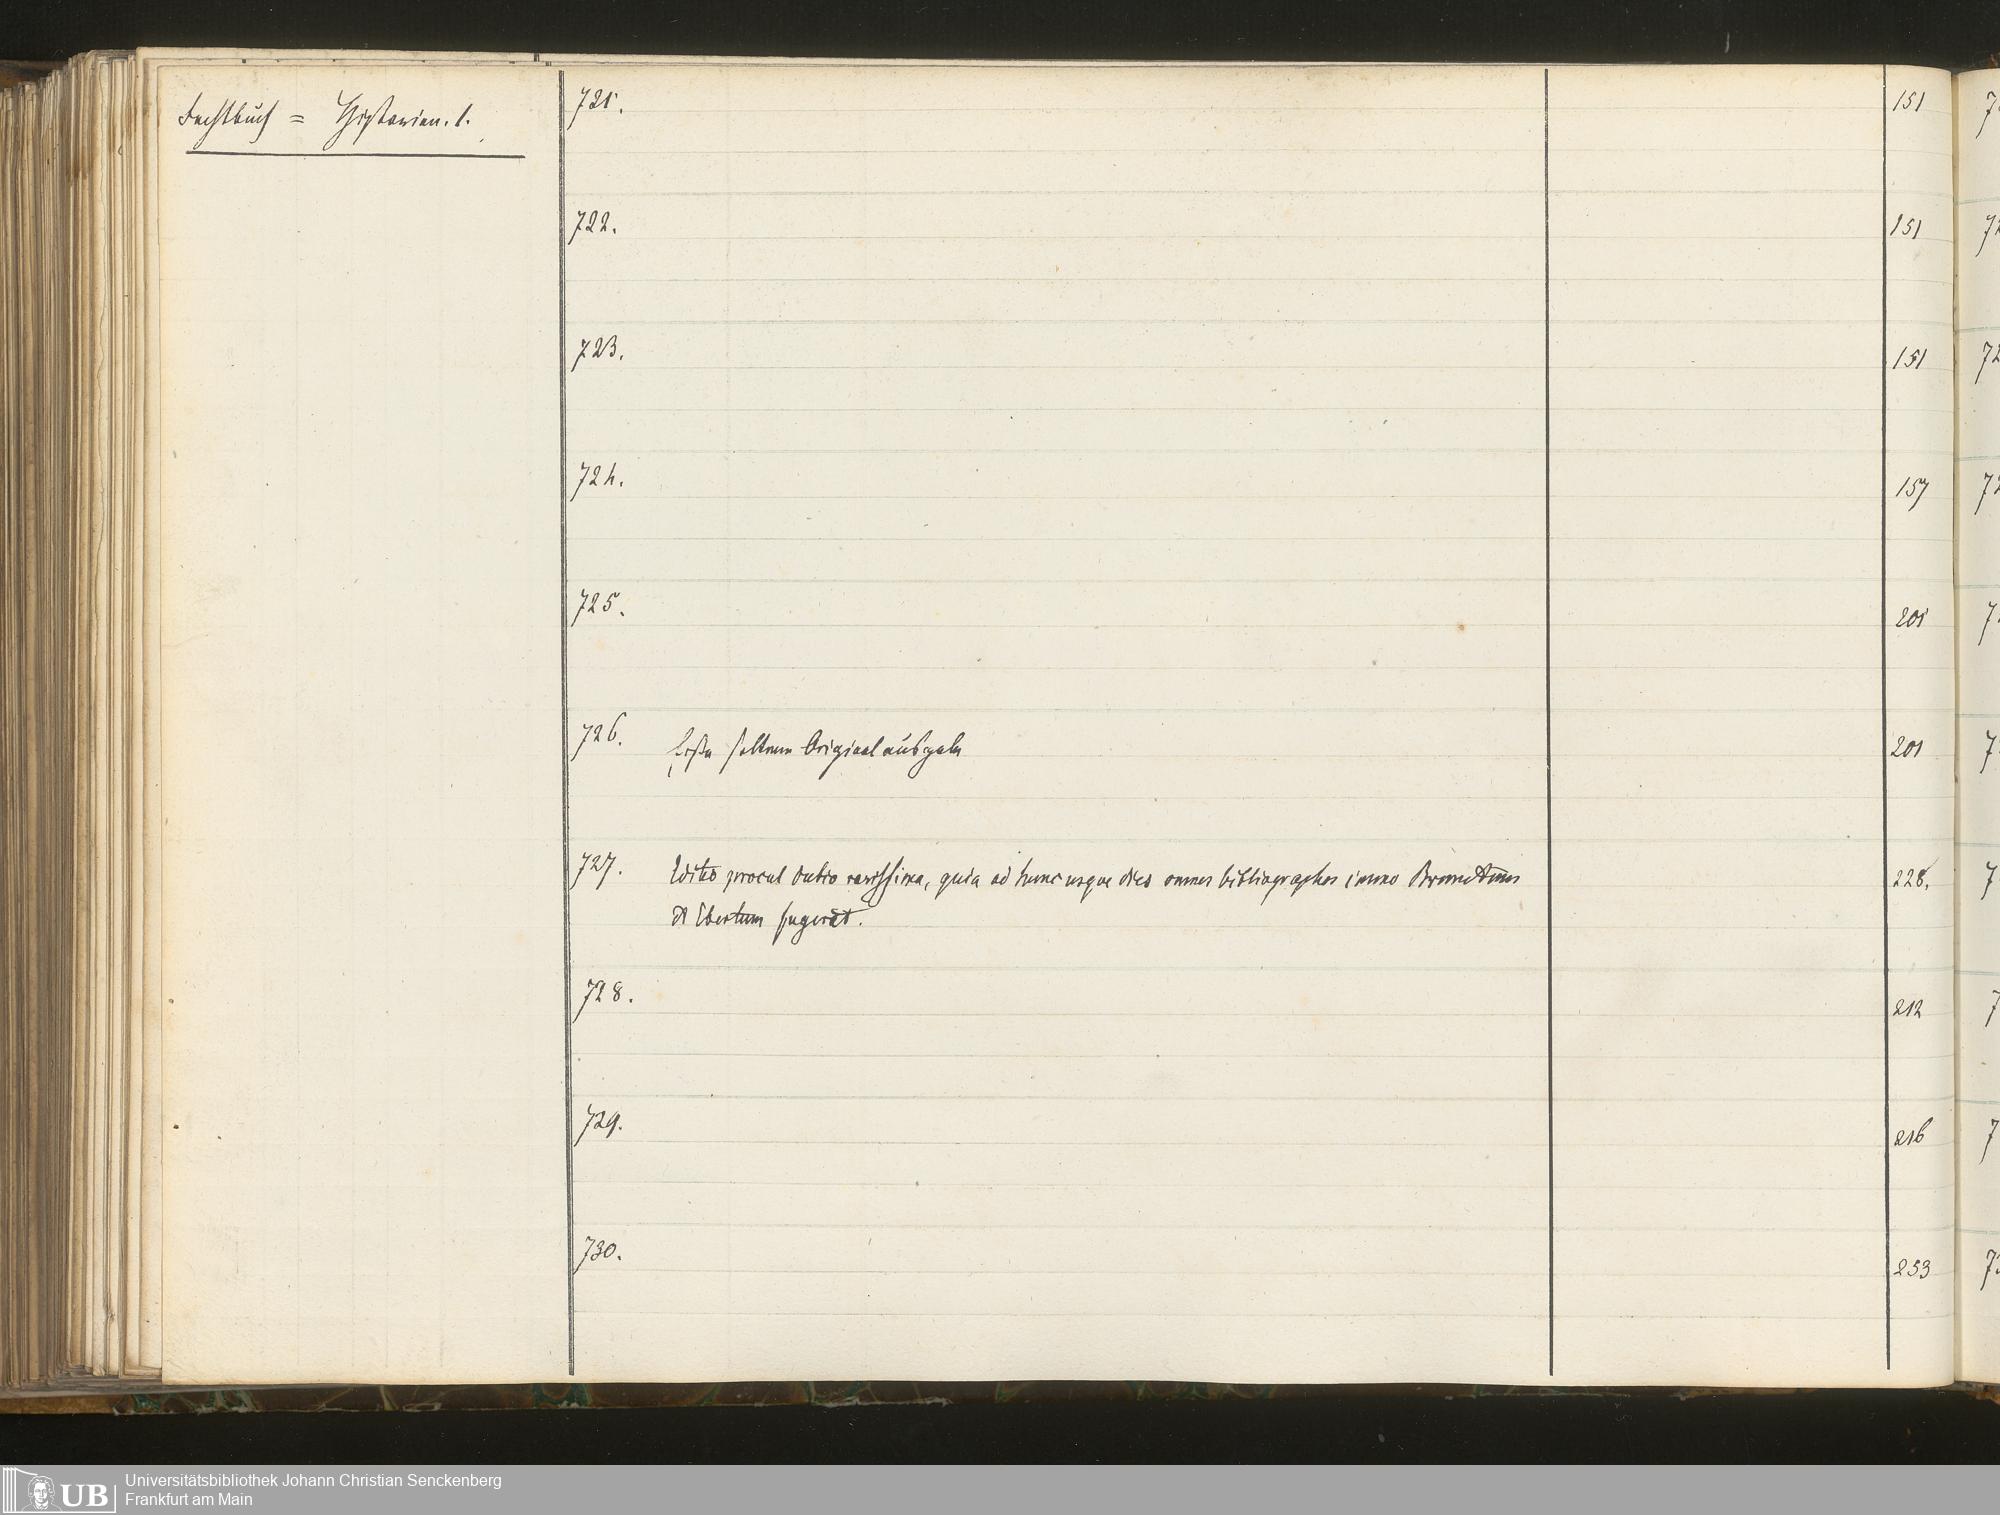 Fechtbuch = Historien. 1.
721. 151
722. 151
723. 151
724. 157
725. 201
726. Erste seltene Originalausgabe 201
727. Editio procul dubio rarissima, quia ad hunc usque dies omnes bibliographos immo Brunettum 228.
et Ebertum fugerat.
728. 212
729. 216
730. 253
UB Universitätsbibliothek Johann Christian Senckenberg
Frankfurt am Main